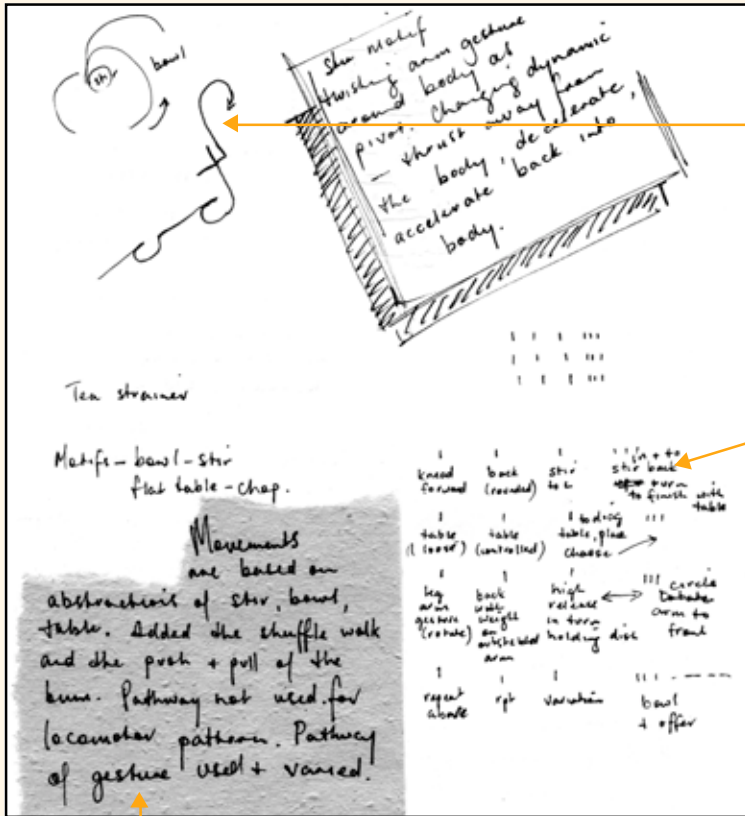 bowl
stir
stir motif
twisting arm gesture
around body as
pivot. Changing dynamic
– thrust away from
the body, decelerate,
accelerate back into
body.
Tea strainer
Motifs – bowl – stir
flat table – chop.
Movements
are based on
abstractions of stir, bowl,
table. Added the shuffle walk
and the push + pull of the
Pathway not used for
locomotor pattern. Pathway
of gesture used + varied.
knead
forward
back
(rounded)
stir
to L
in + to
stir back
turn
to finish with
table
table
(loose)
table
(controlled)
table, place
choose
leg
arm
gesture
(rotate)
back
walk
weight
on
outstretched
arm
high
release
in turn
holding disc
circle
arm to
front
repeat
above
rpt
variation
bowl
+ offer